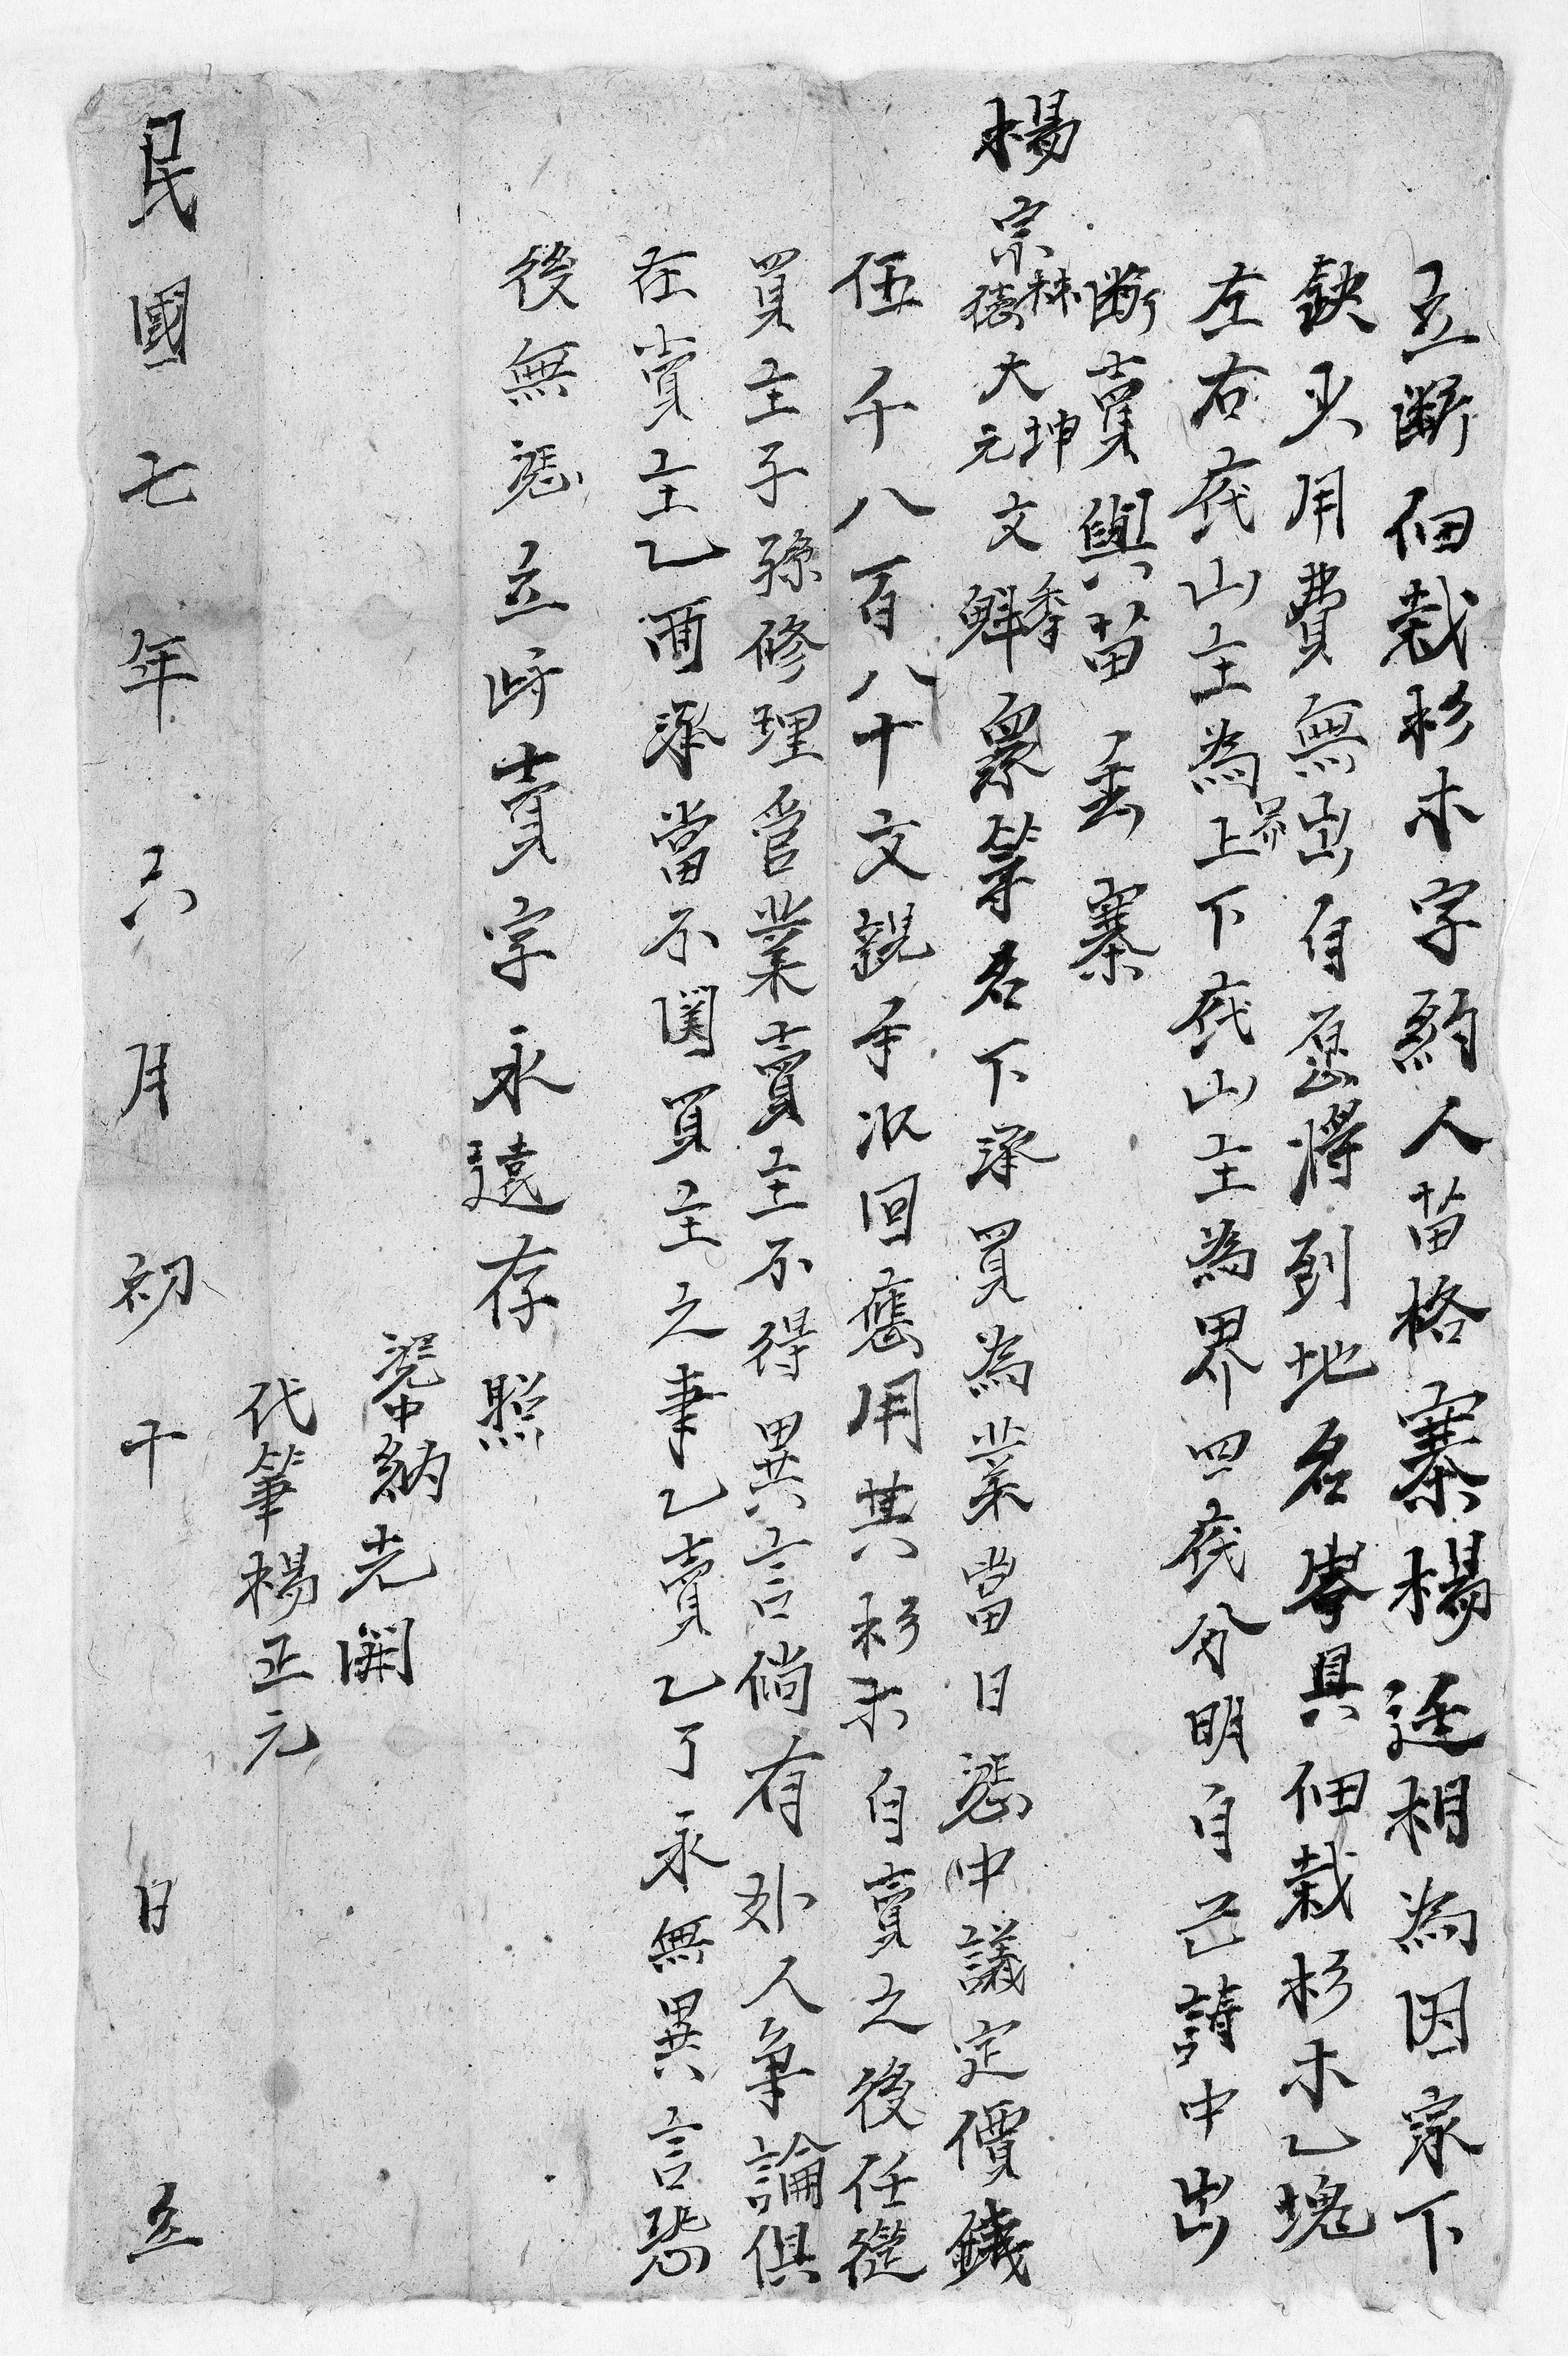 立断佃栽杉木字約人苗格寨楊廷相為因家下
缺少用費無出自愿將到地名岑具佃栽杉木乙塊
左右㡯山主為界上下㡯山主為界四㡯分明自己請中出
断賣與苗丢寨
楊宗林德大坤元文季斛眾等名下承買為業當日憑中議定價錢
伍千八百八十文親手収回應用其杉木自賣之後任從
買主子孫修理管業賣主不得異言倘有外人爭論俱
在賣主乙面承當不関買主之事乙賣乙了永無異言恐
後無憑立此賣字永遠存照
憑中納光開
代筆楊正元
民國七年六月初十日立